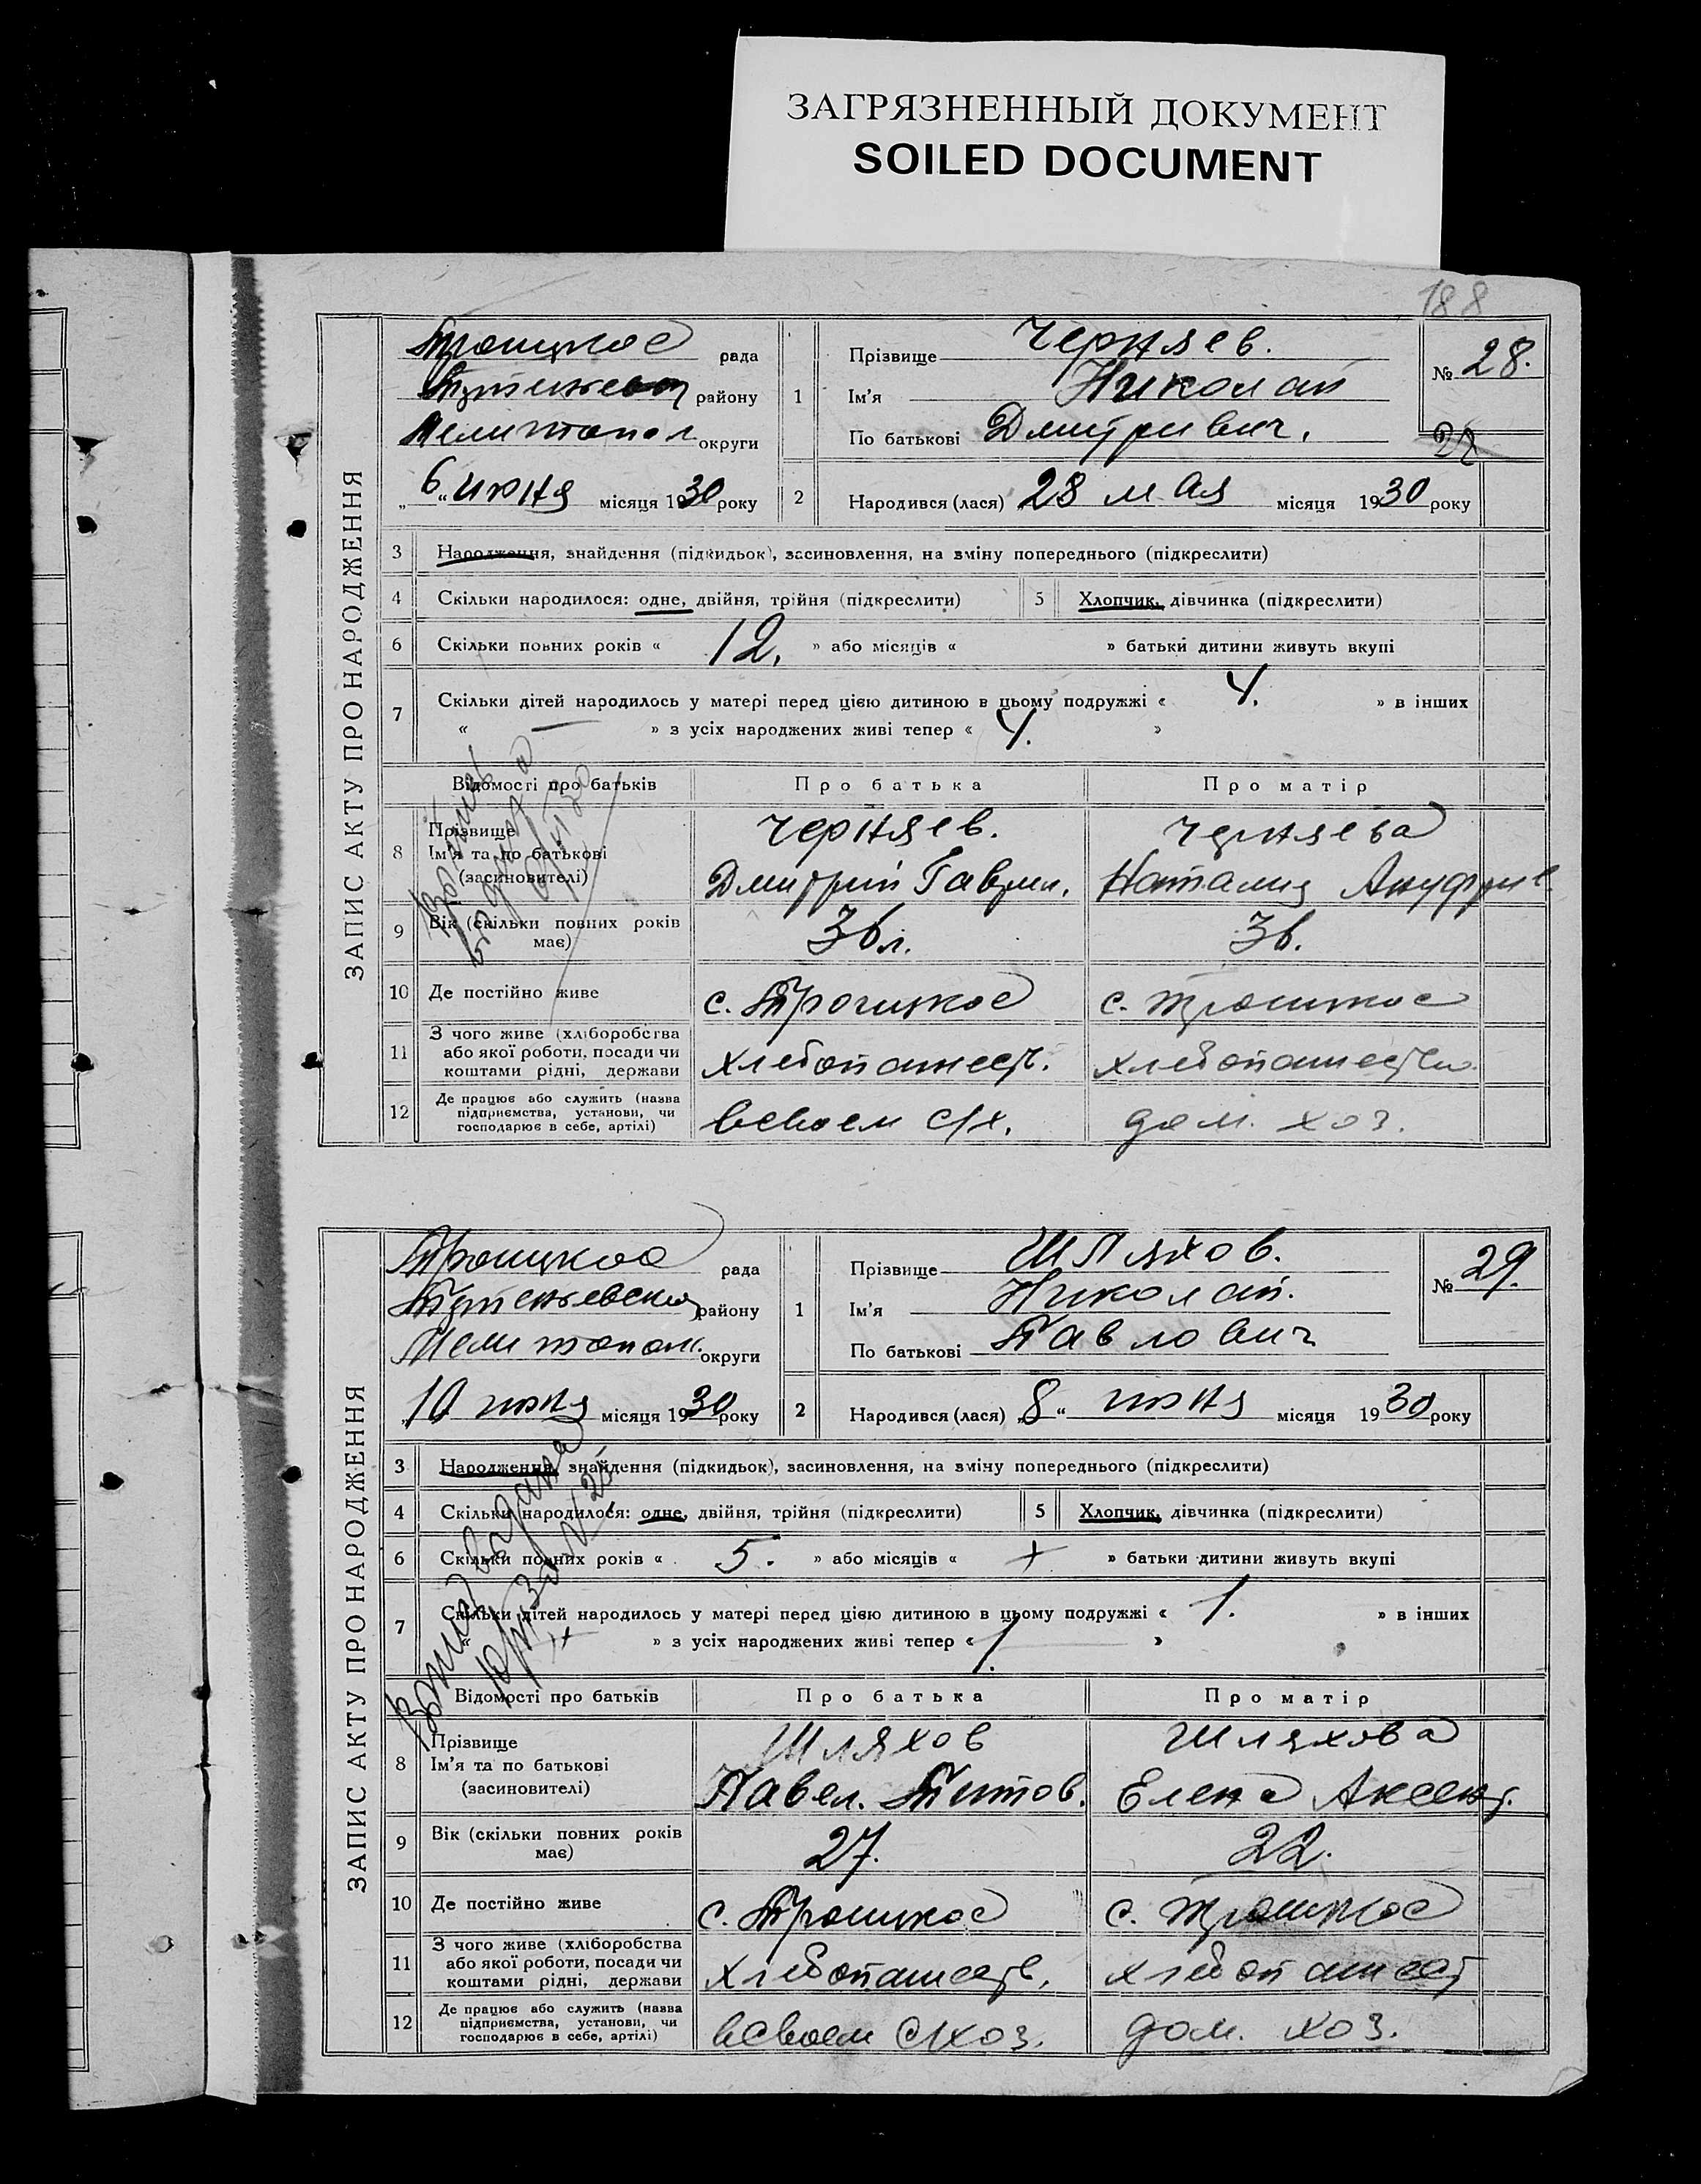 ЗАГРЯЗНЕННЫЙ ДОКУМЕНТ
SOILED DOCUMENT
188
ЗАПИС АКТУ ПРО НАРОДЖЕННЯ
Троицкое рада
району
Мелитопол округи
„6“ июня місяця 1930 року
1 Прізвище Черняев.
Ім'я Николай
По батькові Дмитриевич.
№ 28.
28
2 Народився (лася) 28 мая місяця 1930 року
3 Народження, знайдення (підкидьок), засиновлення, на зміну попереднього (підкреслити)
4 Скільки народилося: одне, двійня, трійня (підкреслити) 5 Хлопчик, дівчинка (підкреслити)
6 Скільки повних років « 12. » або місяців « » батьки дитини живуть вкупі
7 Скільки дітей народилось у матері перед цією дитиною в цьому подружжі « 4. » в інших
« — » з усіх народжених живі тепер « 4. »
Відомості про батьків Про батька Про матір
8 Прізвище Черняев. Черняева
Ім'я та по батькові
(засиновителі) Дмитрий Гаврил. Наталия Ануфрие
9 Вік (скільки повних років має) 36 л. 36.
10 Де постійно живе с. Троицкое с. Троицкое
11 З чого живе (хліборобства
або якої роботи, посади чи
коштами рідні, держави хлебопашеств. хлебопашество
12 Де працює або служить (назва
підприємства, установи, чи
господарює в себе, артілі) всвоем с/х. дом. хоз.
ЗАПИС АКТУ ПРО НАРОДЖЕННЯ
Троицкое рада
району
Мелитопол. округи
„10 июня місяця 1930 року
1 Прізвище Шляхов.
Ім'я Николай.
По батькові Павлович
№ 29.
2 Народився (лася) „8“ июня місяця 1930 року
3 Народження, знайдення (підкидьок), засиновлення, на зміну попереднього (підкреслити)
4 Скільки народилося: одне, двійня, трійня (підкреслити) 5 Хлопчик, дівчинка (підкреслити)
6 Скільки повних років « 5. » або місяців « + » батьки дитини живуть вкупі
7 Скільки дітей народилось у матері перед цією дитиною в цьому подружжі « 1. » в інших
« » з усіх народжених живі тепер « 1. »
Відомості про батьків Про батька Про матір
8 Прізвище Шляхов Шляхова
Ім'я та по батькові
(засиновителі) Павел. Титов. Елена Аксент.
9 Вік (скільки повних років має) 27. 22.
10 Де постійно живе с. Троицкое с. Троицкое
11 З чого живе (хліборобства
або якої роботи, посади чи
коштами рідні, держави хлебопашеств. хлебопашест
12 Де працює або служить (назва
підприємства, установи, чи
господарює в себе, артілі) всвоем с/хоз. дом. хоз.